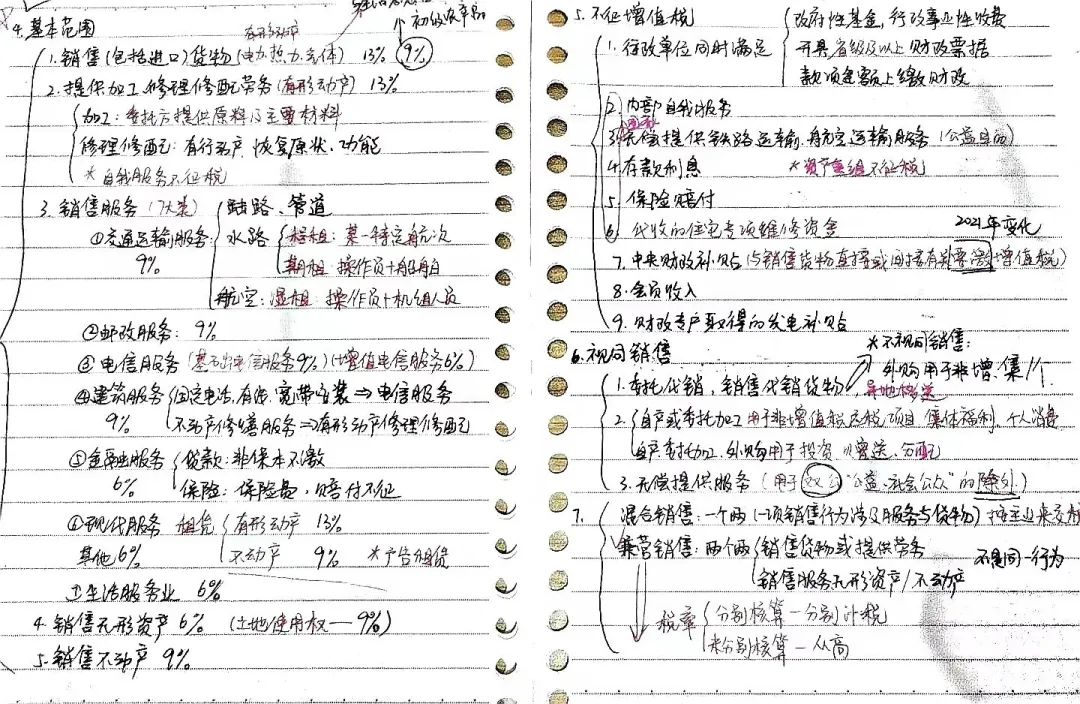 初级农产品
4.基本范围
有形动产
1.销售(包括进口)货物(电力.热力.气体) 13% 9%
2.提供加工修理修配劳务(有形动产) 13%
加工:委托方提供原料及主要材料
修理修配:有形动产 恢复原状、功能
*自我服务不征税
3.销售服务(7大类)
陆路、管道
①交通运输服务:
水路
程租:某一特定航次
9%
期租:操作员+船舶
航空:湿租 操作员+机组人员
②邮政服务: 9%
③电信服务(基础电信服务9%)(增值电信服务6%)
④建筑服务 固定电话,有线,宽带安装⇒电信服务
9% 不动产修缮服务⇒有形动产修理修配
⑤金融服务 贷款:非保本不缴
6% 保险:保险费,赔付不征
⑥现代服务 租赁 有形动产 13%
其他6% 不动产 9% *广告租赁
⑦生活服务业 6%
4.销售无形资产 6% (土地使用权—9%)
5.销售不动产 9%
5.不征增值税
政府性基金,行政事业性收费
1.行政单位同时满足
开具省级及以上财政票据
款项全额上缴财政
2.内部自我服务
3.无偿提供铁路运输,航空运输服务(公益目的)
4.存款利息 *资产重组不征税
5.保险赔付
6.代收的住宅专项维修资金
2021年变化
7.中央财政补贴(与销售货物直接或间接有关要缴增值税)
8.会员收入
9.财政专户取得的发电补贴
6.视同销售
*不视同销售:
外购用于非增.集.个
1.委托代销,销售代销货物
异地移送
2.自产或委托加工用于非增值税应税项目 集体福利、个人消费
自产委托加工.外购用于投资、赠送、分配
3.无偿提供服务(用于"公益、社会公众"的除外)
7.混合销售:一个两(一项销售行为涉及服务与货物)按主业来交税
兼营销售:两个两 销售货物或提供劳务
不是同一行为
销售服务无形资产/不动产
税率 分别核算—分别计税
未分别核算—从高